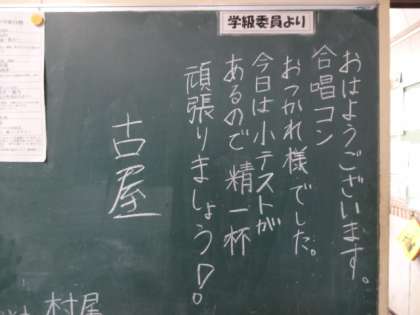 学級委員より
おはようございます。
合唱コン
おつかれ様でした。
今日は小テストが
あるので精一杯
頑張りましょう!
古屋
村尾